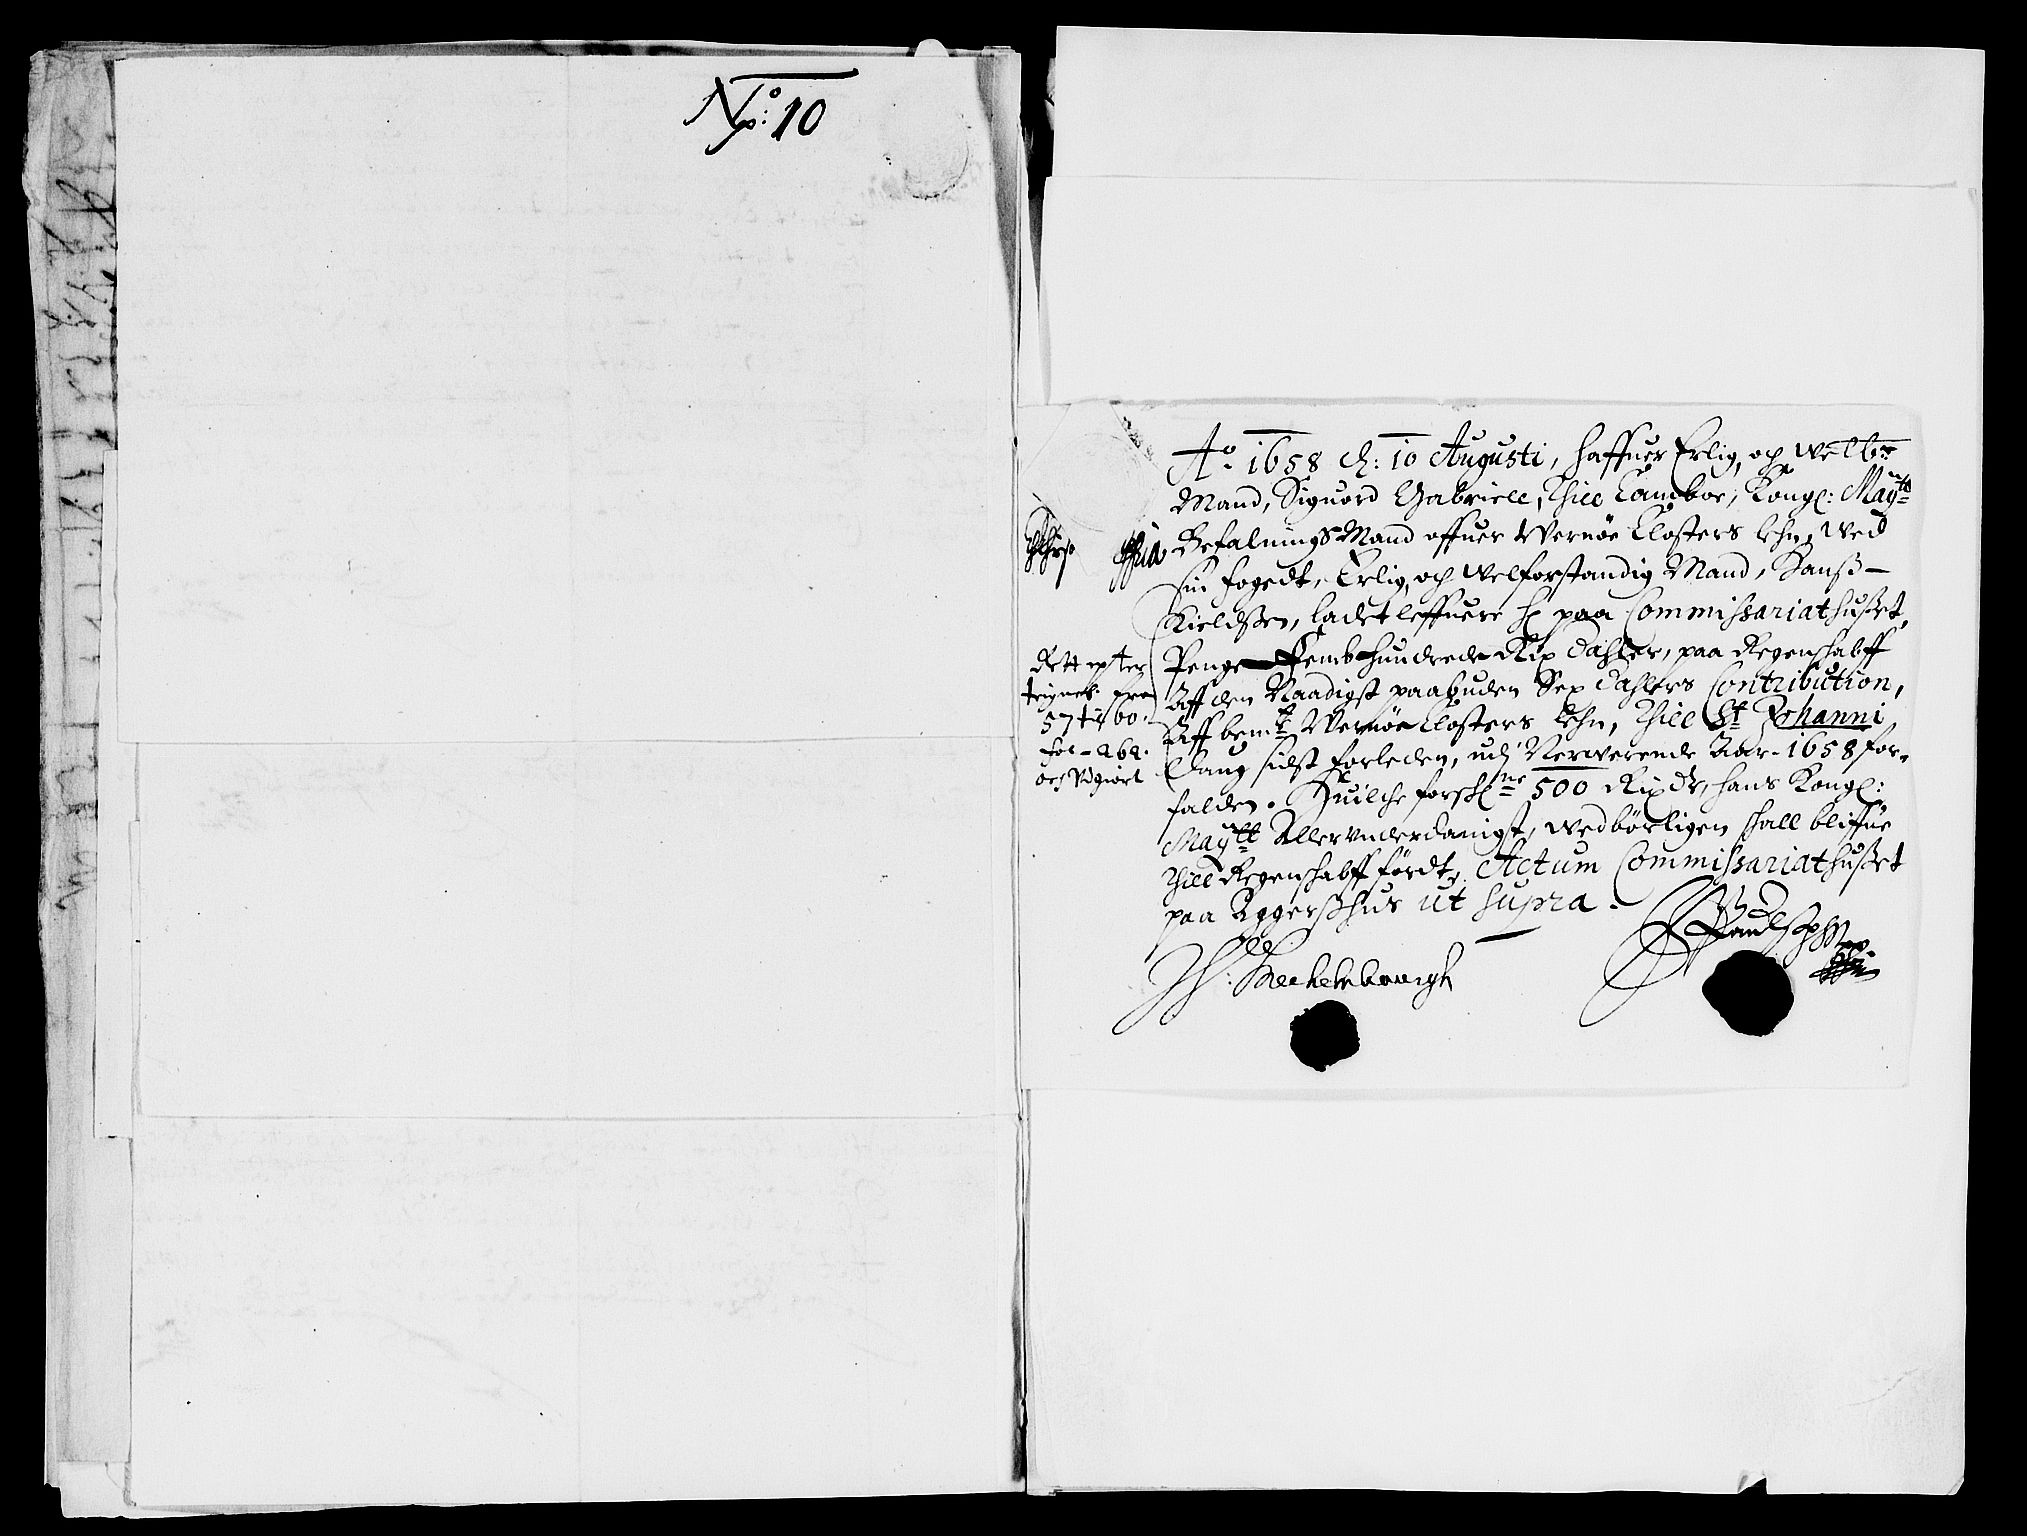 No: 10
Ao 1658 d: 10 Augusti, haffuer Erlig, och welbr
Mand, Siguord Gabriell, Thill Camboe, Kongl: Maytts
Befalnings Mand offuer Wernøe Closters lehn, wed
sin fogedt, Erlig, och welforstandig Mand, Hanß
Kieldßen, ladet leffuere h paa Commissariathußet,
Penge Fembhundrede Rix Dahler, paa Regenschabff
Aff den Naadigst paabuden Sex Dahlers Contribution,
Aff bemte Wernøe Closters lehn, Thill St Johanni
Dag sidst forleden, udj Nerwerende Aar 1658 for-
falden. Huilche forschne 500 Rixdr, hans Kongl:
Maytt Allervnderdanigst, wedbörligen schall bliffue
Thill Regenschabff fördt, Actum Commissariathußet
paa Aggerßhus ut supra.
Rett epter
teignet fra
57 til 60
fol - 262.